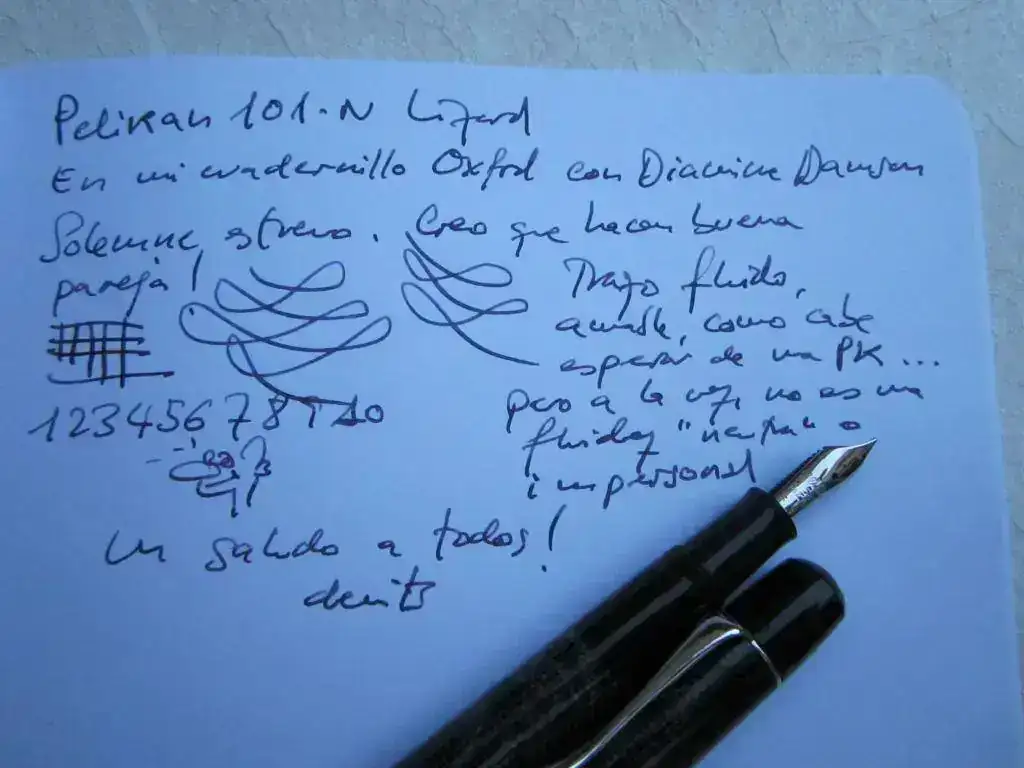 Pelikan 101-N Lizard
En mi cuadernillo Oxford con Diamine Damson
Solemne estreno. Creo que hacen buena
pareja!
Trazo fluido,
amable, como cabe
esperar de un PK...
pero a la vez, no es una
fluidez "neutra" o
impersonal
1 2 3 4 5 6 7 8 9 10
Un saludo a todos!